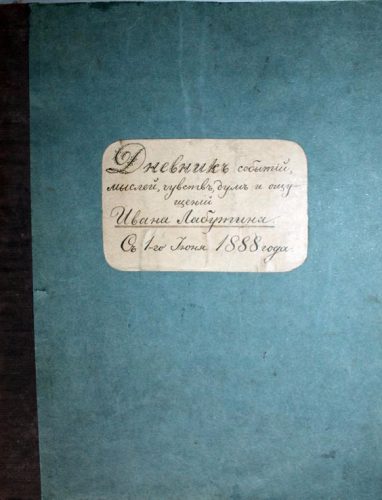 Дневникъ событій,
мыслей, чувствъ, думъ и ощу-
щеній
Ивана Лабутина.
Съ 1-го Іюня 1888 года.